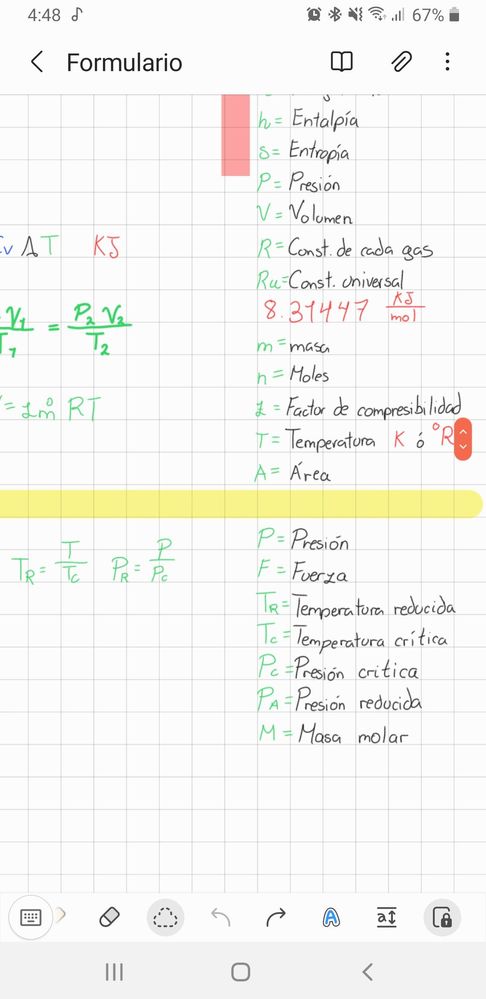 4:48
67%
Formulario
h = Entalpía
s = Entropía
P = Presión
V = Volumen
R = Const. de cada gas
Ru = Const. universal
8.31447 KJ/mol
m = masa
n = Moles
z = Factor de compresibilidad
T = Temperatura K ó °R
A = Área
ΔT KJ
V₁ = P₂ V₂ / T₂
= zṁ RT
T_R = T/T_C P_R = P/P_C
P = Presión
F = Fuerza
T_R = Temperatura reducida
T_C = Temperatura crítica
P_C = Presión critica
P_A = Presión reducida
M = Masa molar